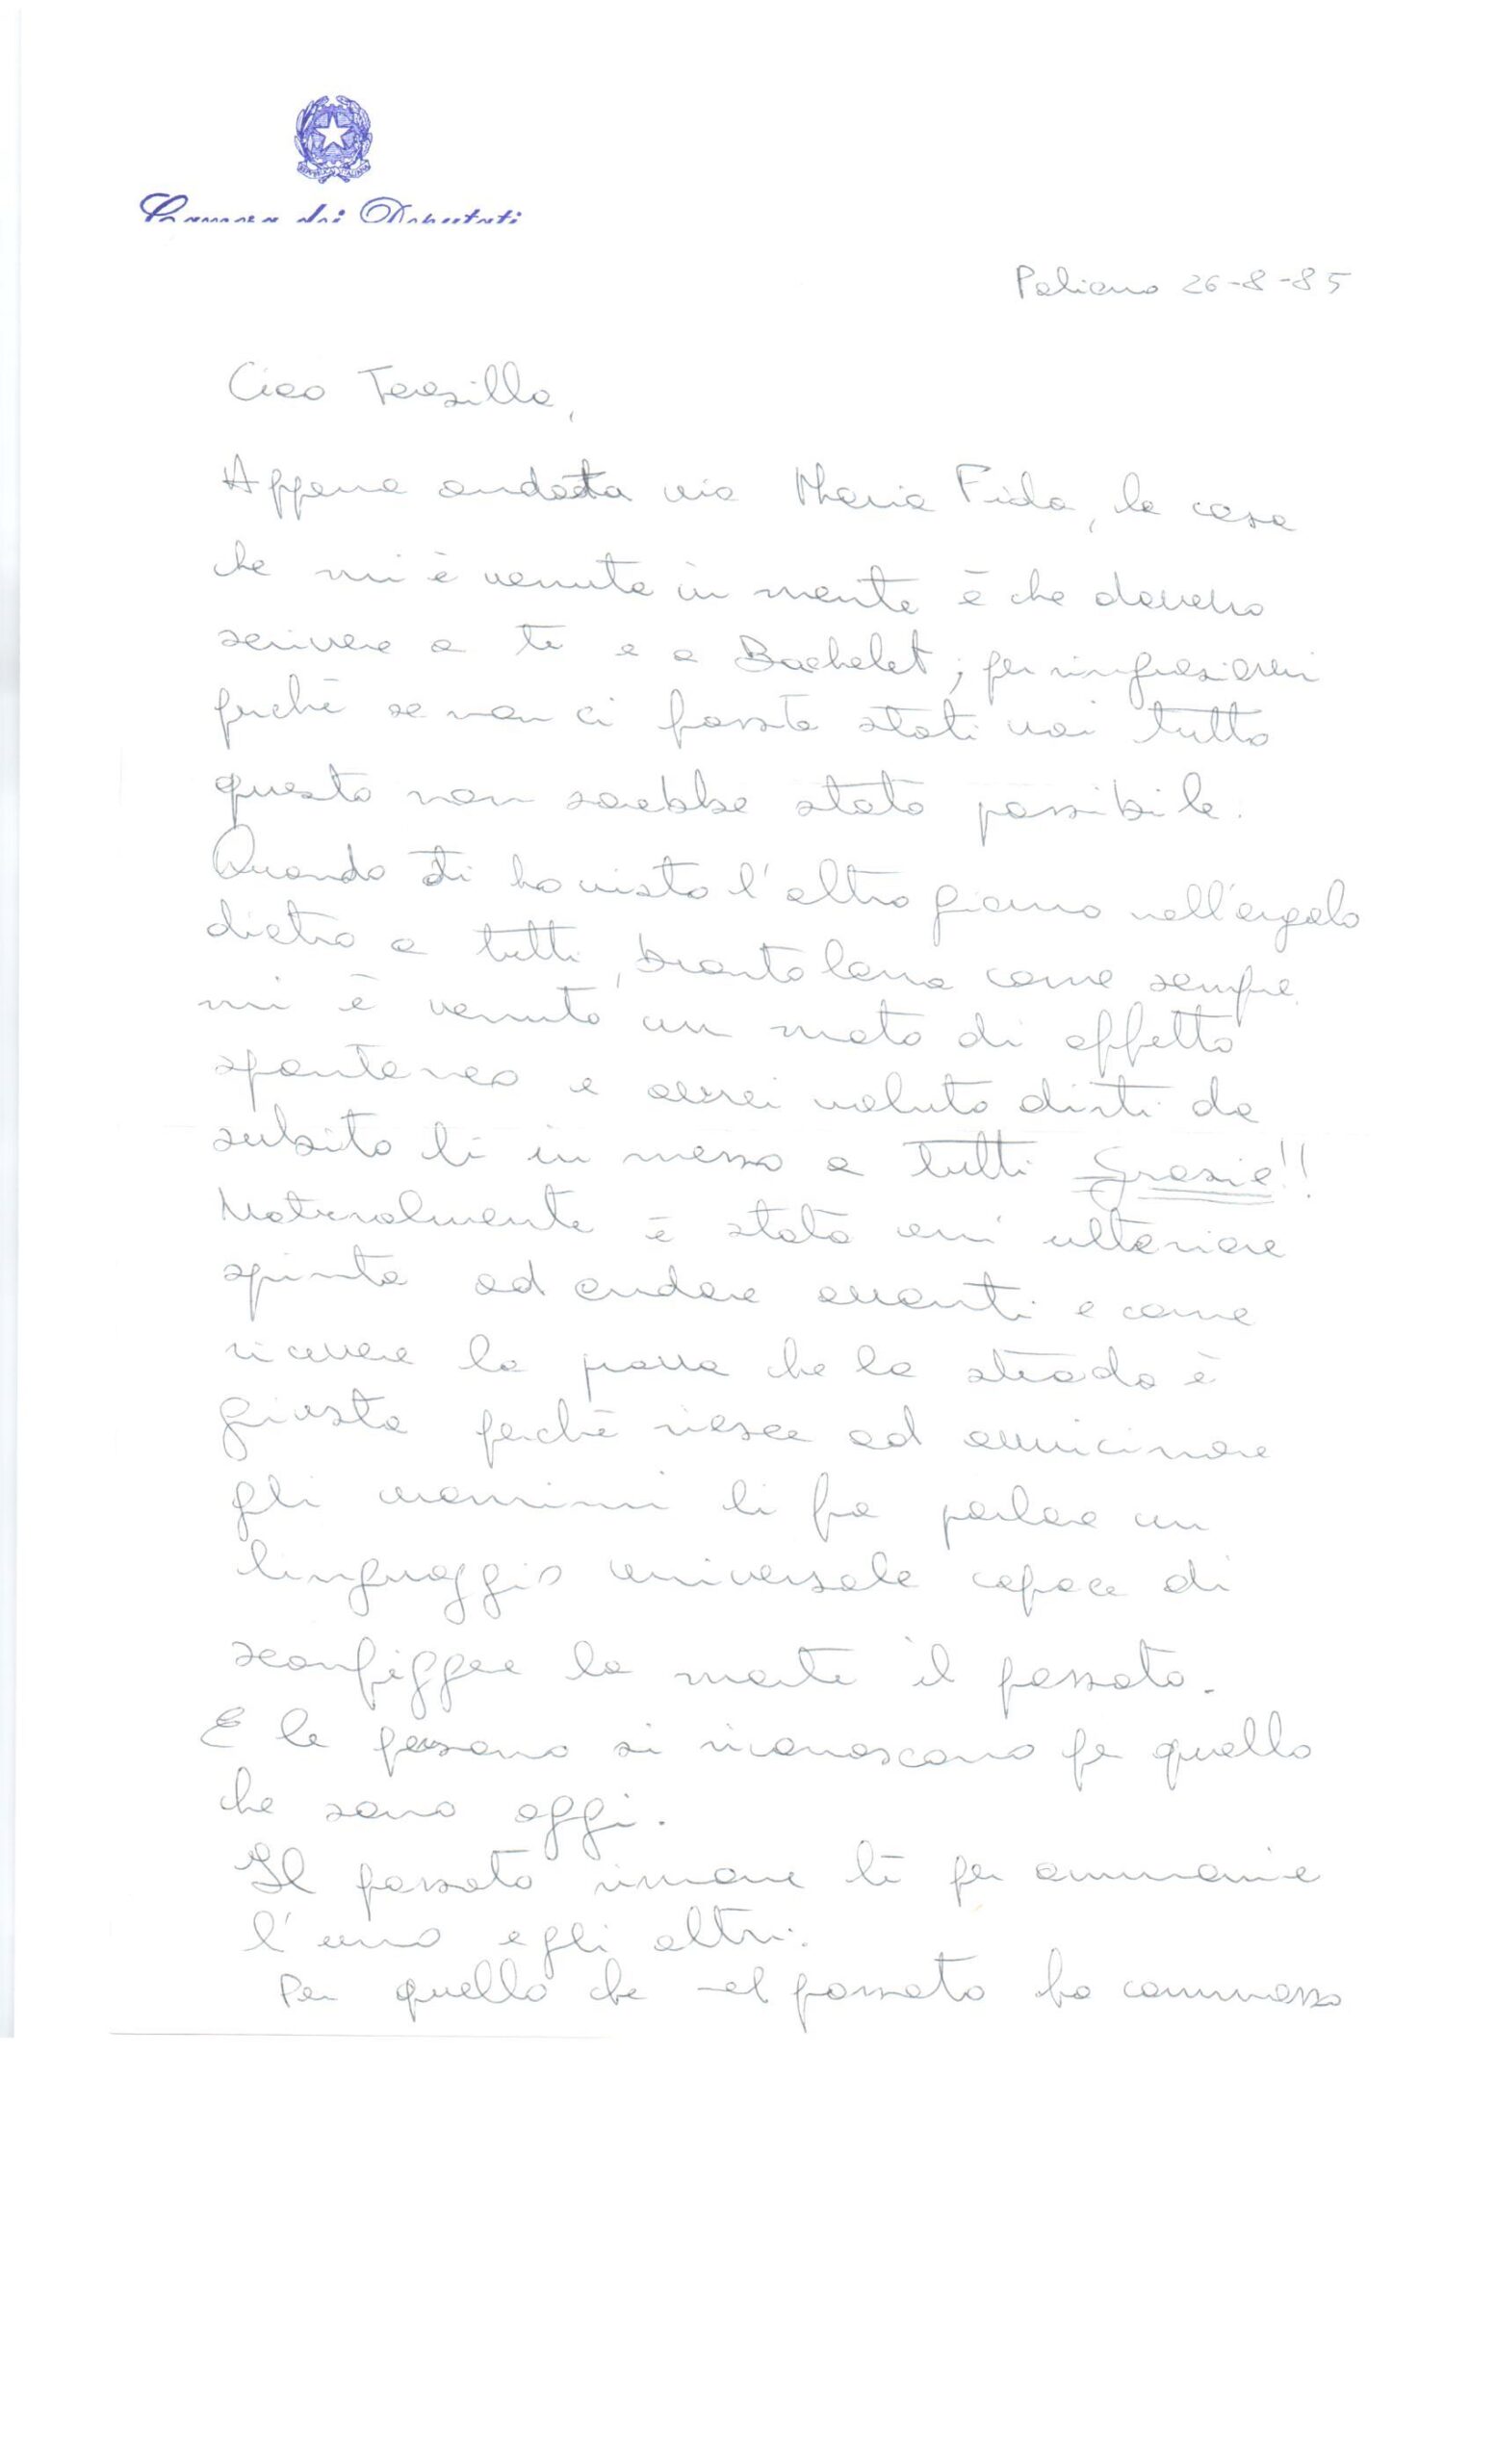 Camera dei Deputati
Paliano 26-8-85
Ciao Teresilla,
Appena andata via Maria Fida, la cosa
che mi è venuta in mente è che dovevo
scrivere a te e a Bachelet, per ringraziarvi
perchè se non ci foste stati voi tutto
questo non sarebbe stato possibile.
Quando ti ho visto l'altro giorno nell'angolo
dietro a tutti, brontolona come sempre
mi è venuto un moto di affetto
spontaneo e avrei voluto dirti da
subito lì in mezzo a tutti Grazie!!
Naturalmente è stata un'ulteriore
spinta ad andare avanti e come
ricevere la prova che la strada è
giusta perchè riesce ad avvicinare
gli uomini li fa parlare un
linguaggio universale capace di
sconfiggere la morte il passato.
E le persone si riconoscono per quello
che sono oggi.
Il passato rimane lì per ammonire
l'uno e gli altri.
Per quello che nel passato ho commesso